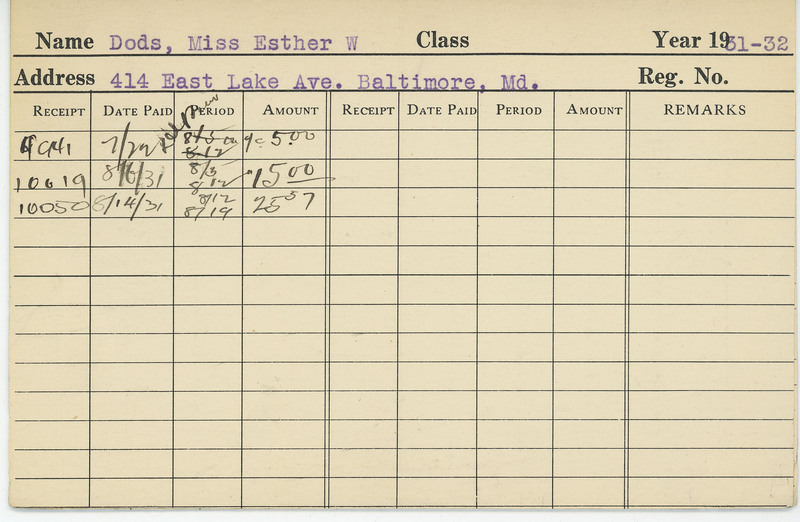 Name Dods, Miss Esther W Class Year 1931-32
Address 414 East Lake Ave. Baltimore, Md. Reg. No.
RECEIPT DATE PAID PERIOD AMOUNT RECEIPT DATE PAID PERIOD AMOUNT REMARKS
7/29 8/5 5.00
8/12
10019 8/6/31 8/5 15 00
8/12
10050 8/14/31 8/12 25 57
8/19